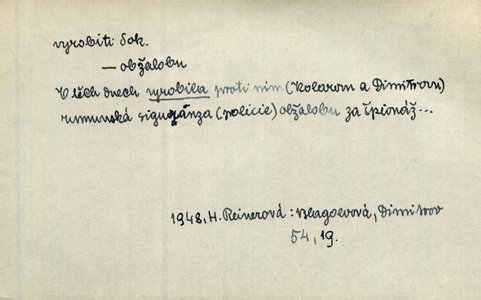 vyrobiti dok.
— obžalobu
V těch dnech vyrobila proti nim (Kolarovu a Dimitrovu)
rumunská siguranza (policie) obžalobu za špionáž...
1948, H. Reinerová: Blagoevová, Dimitrov
54, 19.